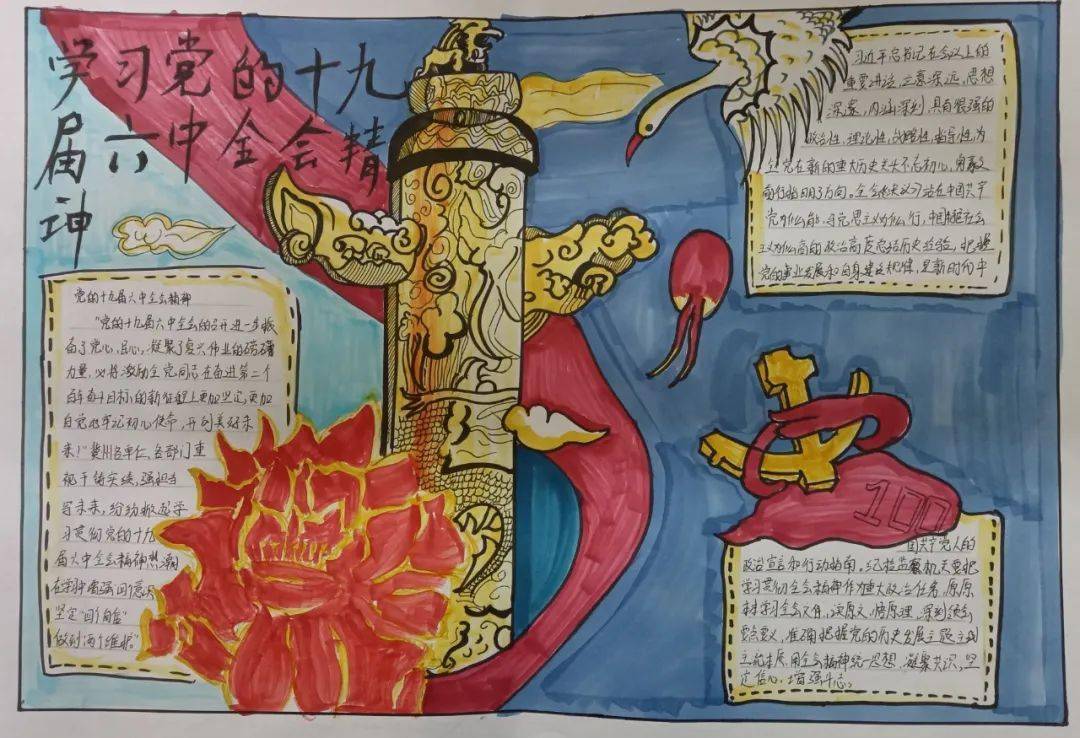 学习党的十九
届六中全会精
神
党的十九届六中全会精神
"党的十九届六中全会的召开进一步振
奋了党心、民心,凝聚了复兴伟业的磅礴
力量,必将激励全党同志在奋进第二个
百年奋斗目标的新征程上更加坚定、更加
自觉地牢记初心使命,开创美好未
来!"冀州各单位、各部门重
视于铸实绩,强担当
谱未来,纷纷掀起学
习贯彻党的十九
届六中全会精神热潮
在学中增强"四个意识"
坚定"四个自信"
做到"两个维护"
习近平总书记在会议上的
重要讲话,立意深远,思想
深邃,内涵深刻,具有很强的
政治性、理论性、战略性、指导性,为
全党在新的重大历史关头不忘初心、勇毅
前行指明了方向。全会的决议站在中国共产
党为什么能、马克思主义为什么行、中国特色社会
主义为什么好的政治高度总结历史经验,把握
党的事业发展和自身建设规律,是新时代中
100
国共产党人的
政治宣言和行动指南。纪检监察机关要把
学习贯彻全会精神作为重大政治任务,原原
本本学习全会文件,读原文、悟原理,深刻领会
要点要义,准确把握党的历史发展主题主线
主流本质,用全会精神统一思想、凝聚共识、坚
定信心、增强斗志。